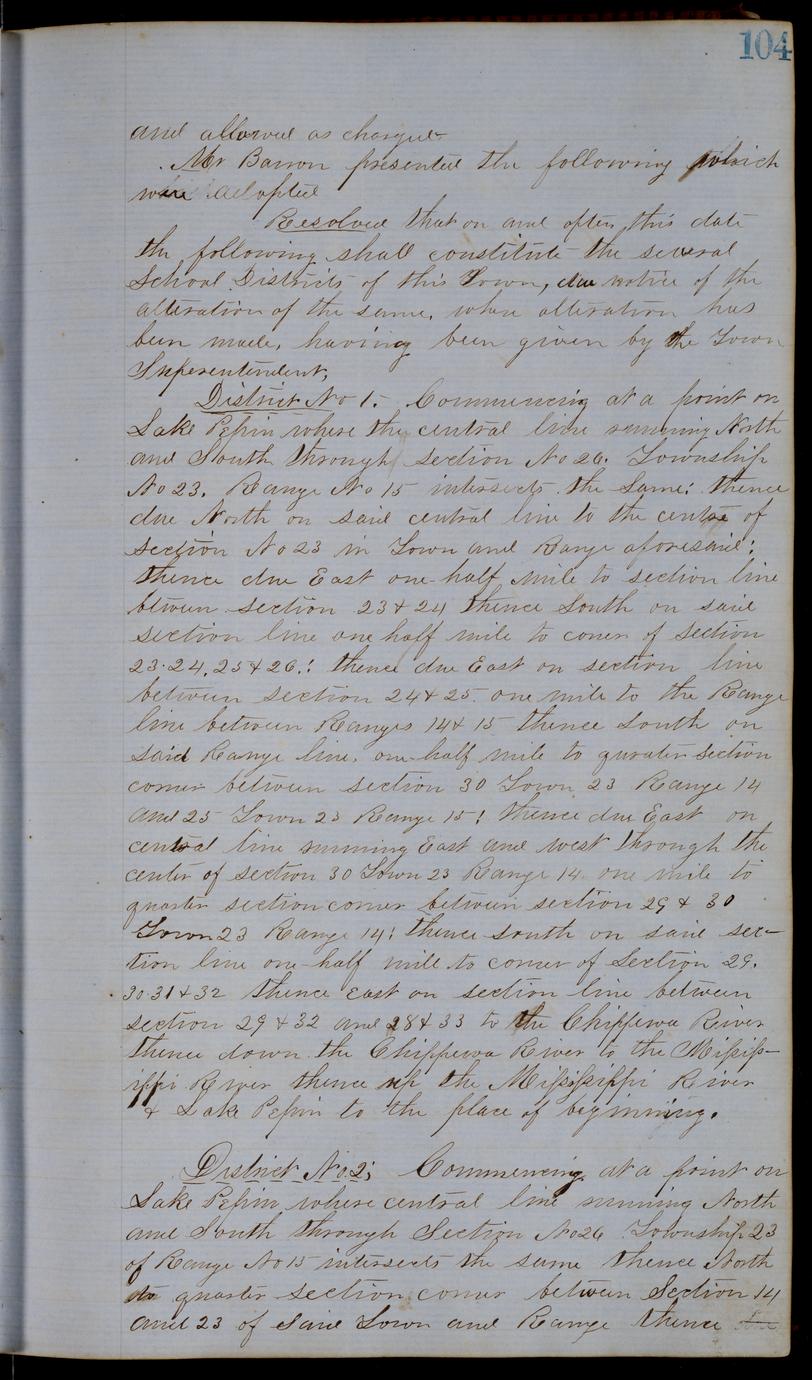 104
and allowed as charged
Mr Barron presented the following which
were adopted
Resolved that on and after this date
the following shall constitute the several
School Districts of this Town, due notice of the
alteration of the same, where alteration has
been made, having been given by the Town
Superentendent,
District No 1. Commencing at a point on
Lake Pepin where the central line running North
and South through section No 26. Township
No 23. Range No 15 intersects the Same: thence
due North on said central line to the centre of
section No 23 in Town and Range aforesaid:
thence due East one-half mile to section line
btween section 23 & 24 thence South on said
section line one half mile to coner of section
23. 24. 25 & 26.: thence due East on section line
between section 24 & 25. one mile to the Range
line between Ranges 14 & 15 thence South on
said Range line, one-half mile to qurater section
corner between section 30 Town 23 Range 14
and 25 Town 23 Range 15: thence due East on
central line running East and west through the
center of section 30 Town 23 Range 14. one mile to
quarter section corner between section 29 & 30
Town 23 Range 14: thence south on said sec-
tion line one-half mile to corner of Section 29.
30. 31 & 32 thence East on section line between
section 29 & 32 and 28 & 33 to the Chippewa River
thence down the Chippewa River to the Missis-
ippi River thence up the Mississippi River
& Lake Pepin to the place of beginning.
District No. 2; Commencing at a point on
Lake Pepin where central line running North
and South through Section No 26 Township 23
of Range No 15 intersects the same thence North
to quarter section corner between Section 14
and 23 of Said Town and Range thence